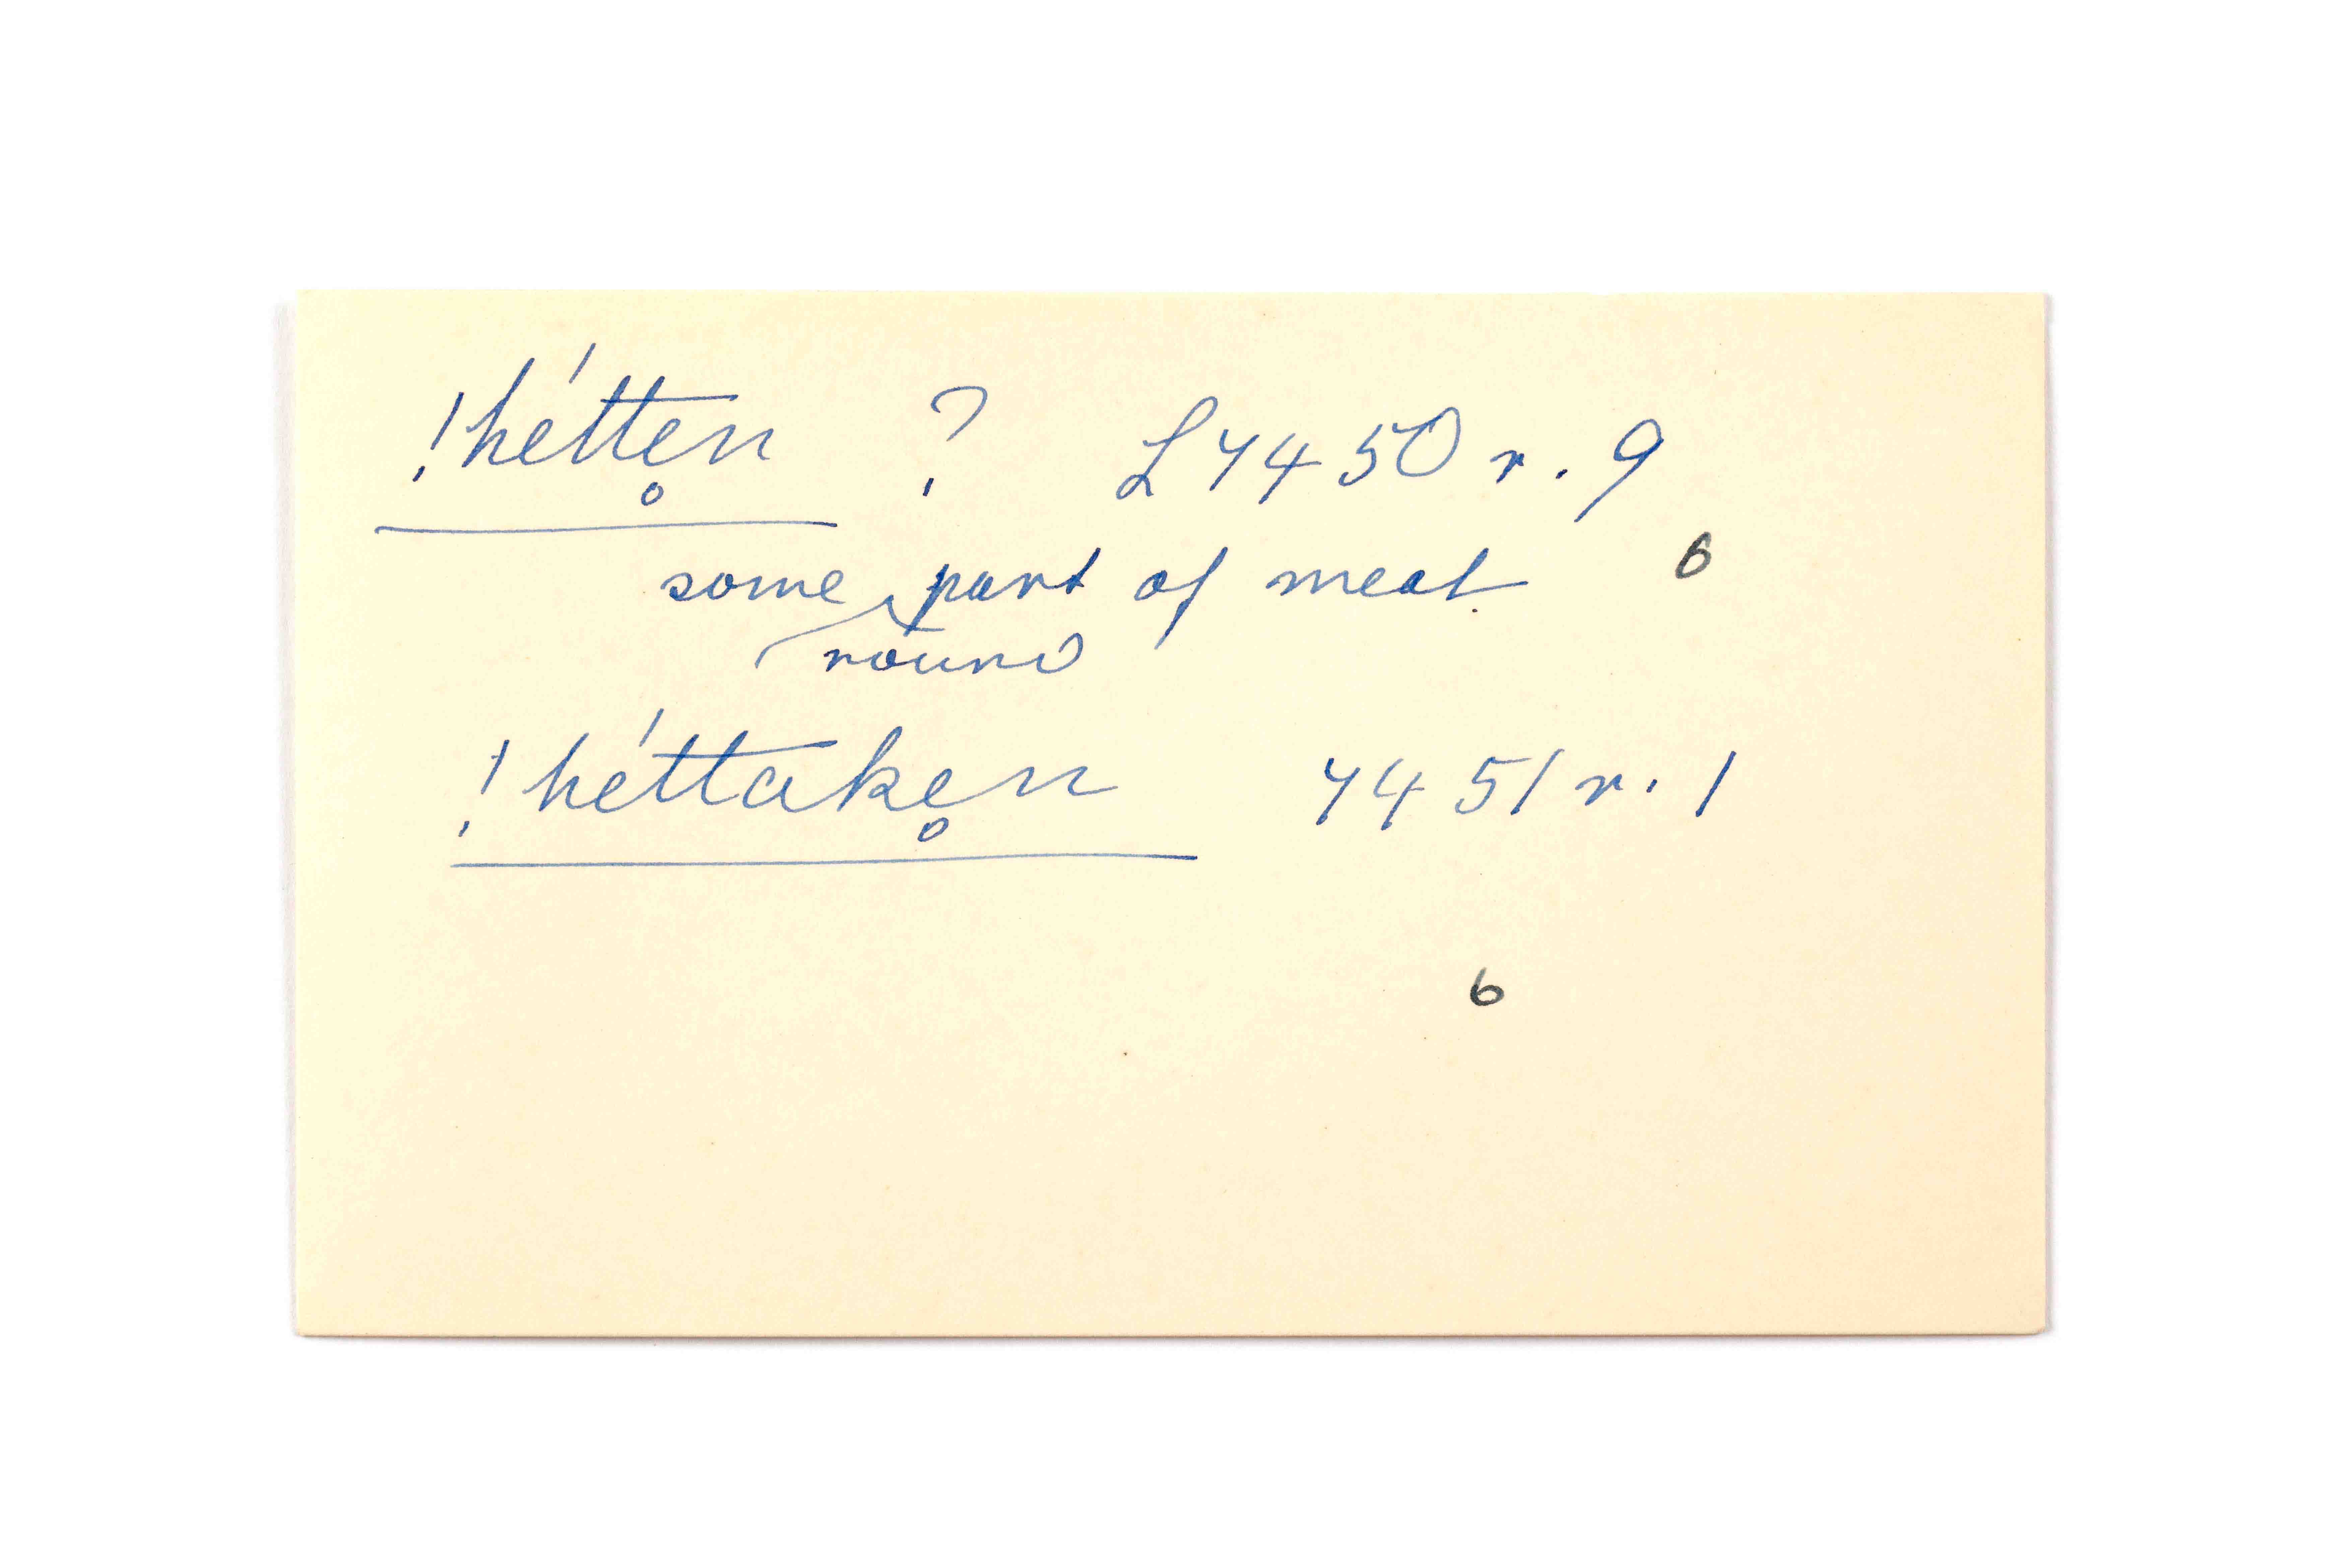 !hétte̥n ? L7450 r. 9
some part of meat 6
round
!héttake̥n 7451 r. 1
6